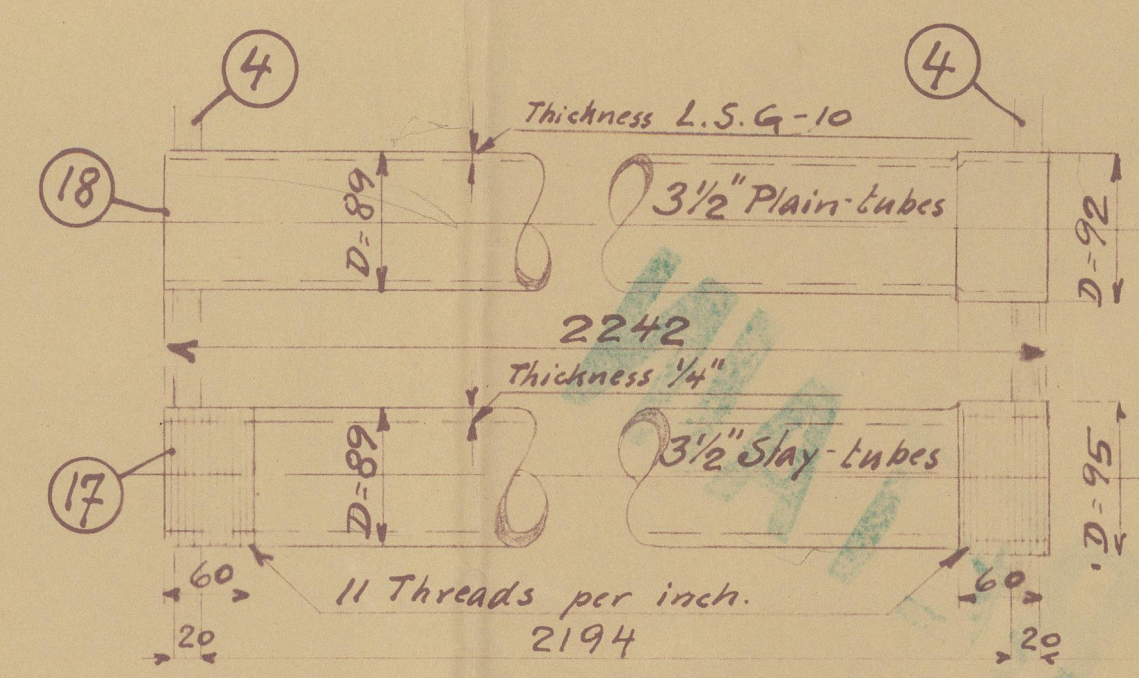 4
4
Thickness L.S.G-10
18
D=89
3½" Plain-tubes
D=92
2242
Thickness ¼"
17
D=89
3½" Stay-tubes
D=95
60
11 Threads per inch.
60
20
2194
20